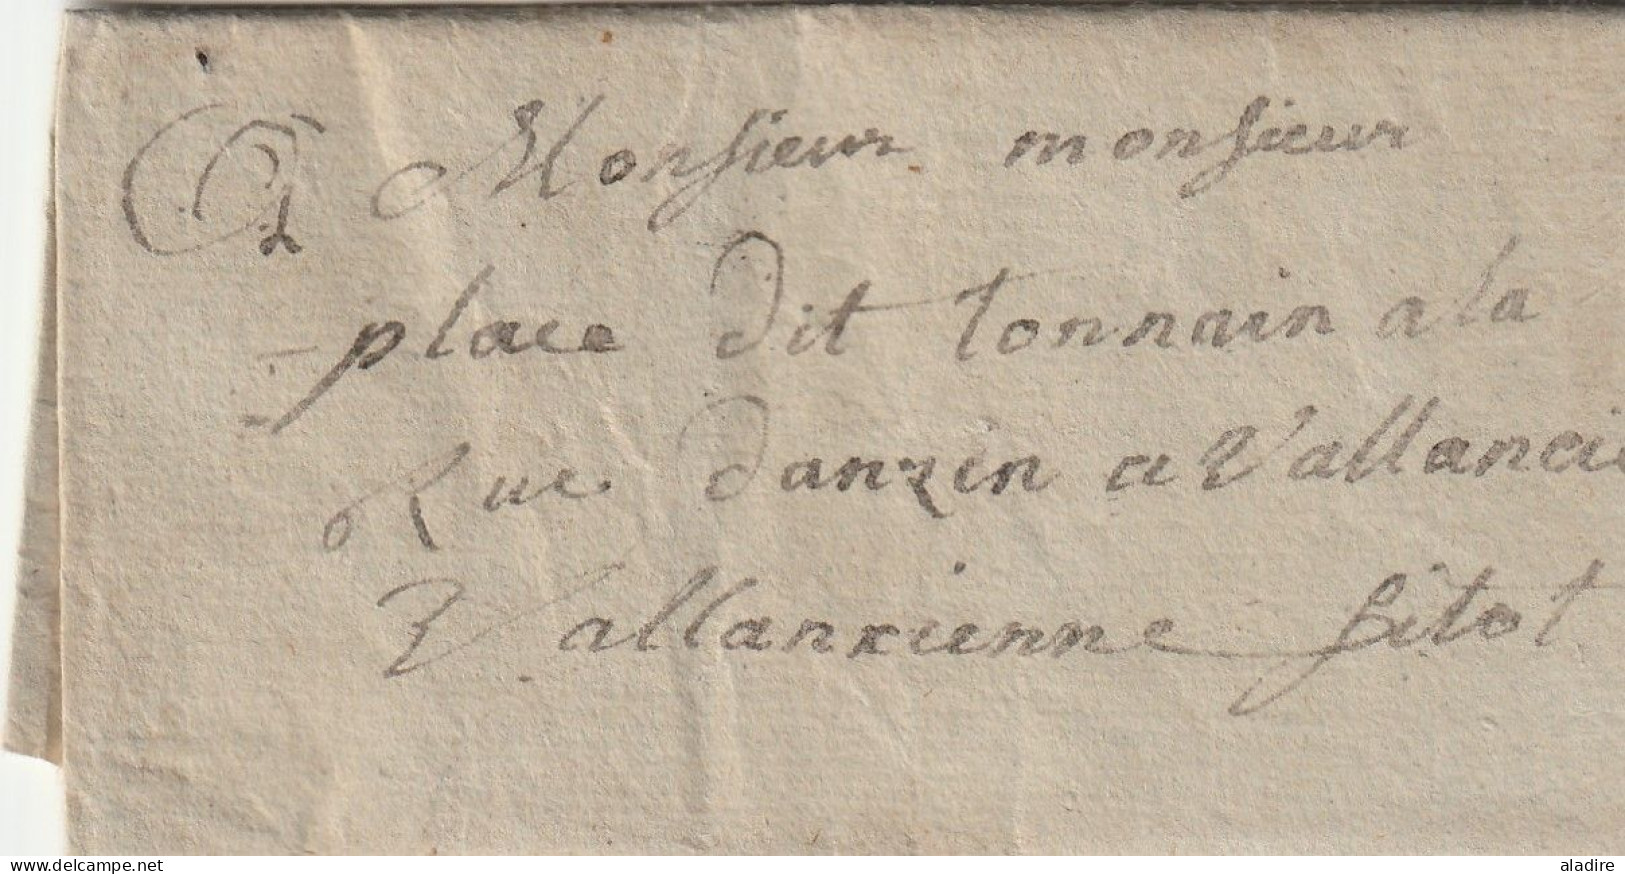 A Monsieur monsieur
place dit tonnain a la
Rue danzin a Vallancie
Vallancienne sitot
aladire